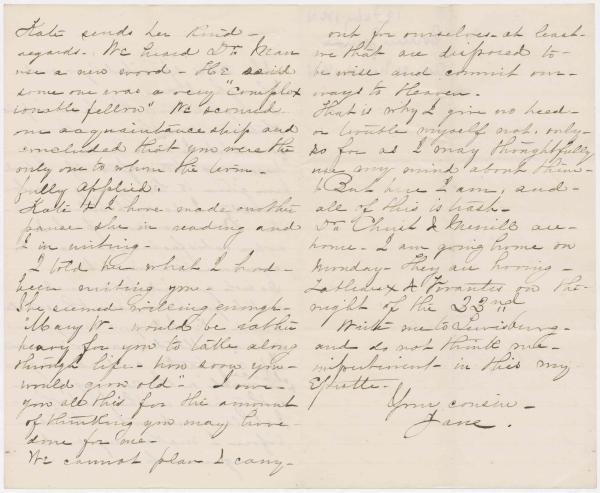 Kate sends her kind-
regards. We heard Dr. Mean
use a new word - He said
some one was a very "complex
ionable fellow" We scorned
me acquaintance ship and
concluded that you were the
only one to whom the term-
fully applied.
Kate & I have made another
pause she in reading and
I in writing -
I told her what I had-
been writing you -
She seemed willing enough-
"Mary W. would be rather
heavy for you to tattle along
through life - how soon you -
would grow old" - I owe -
you all this for the amount
of thinking you may have -
done for me -
We cannot plan & carry-
out for ourselves - at least-
we that are disposed to -
be wise and commit our-
ways to Heaven.
That is why I give no heed-
or trouble myself not. only-
so far as I may thoughtfully
use my mind about them-
But here I am, and-
all of this is trash -
Dr Christ & Merrill are-
home - I am going home on
Monday - They are having -
Tableaux & Vivantes on the-
night of the 22nd
Write me to Lewisburg -
and do not think me -
impertinent - in this my
Epistle -
Your cousin -
Jane .